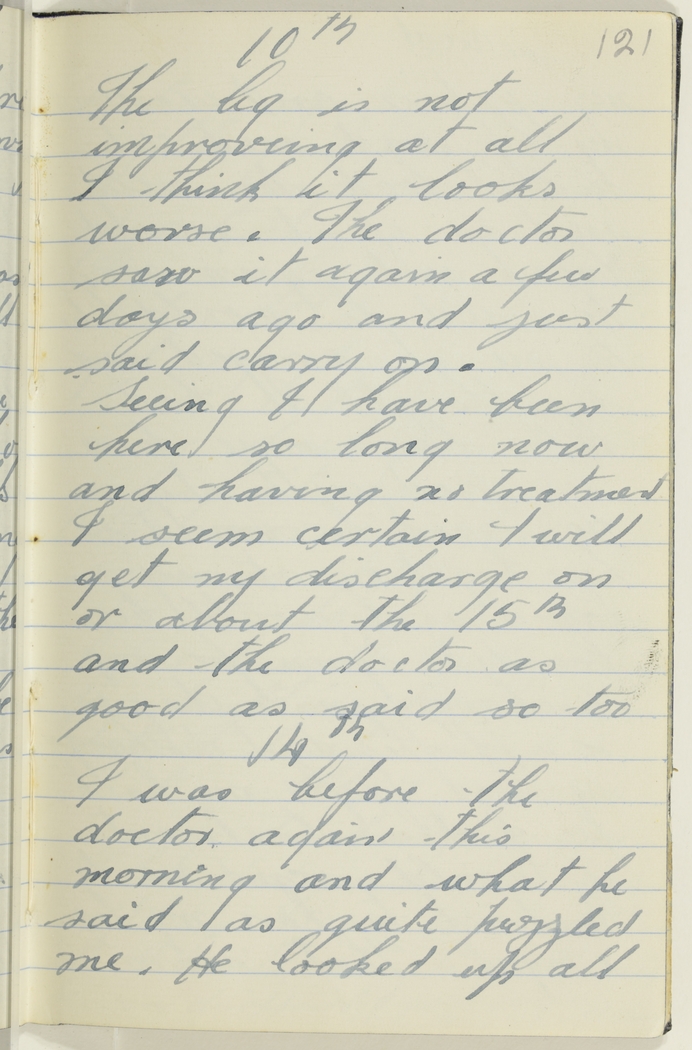 121
10th
The leg is not
improveing at all
I think it looks
worse. The doctor
saw it again a few
days ago and just
said carry on.
Seeing I have been
here so long now
and having no treatment
I seem certain I will
get my discharge on
or about the 15th
and the doctor as
good as said so too
14th
I was before the
doctor again this
morning and what he
said as quite puzzled
me. He looked up all